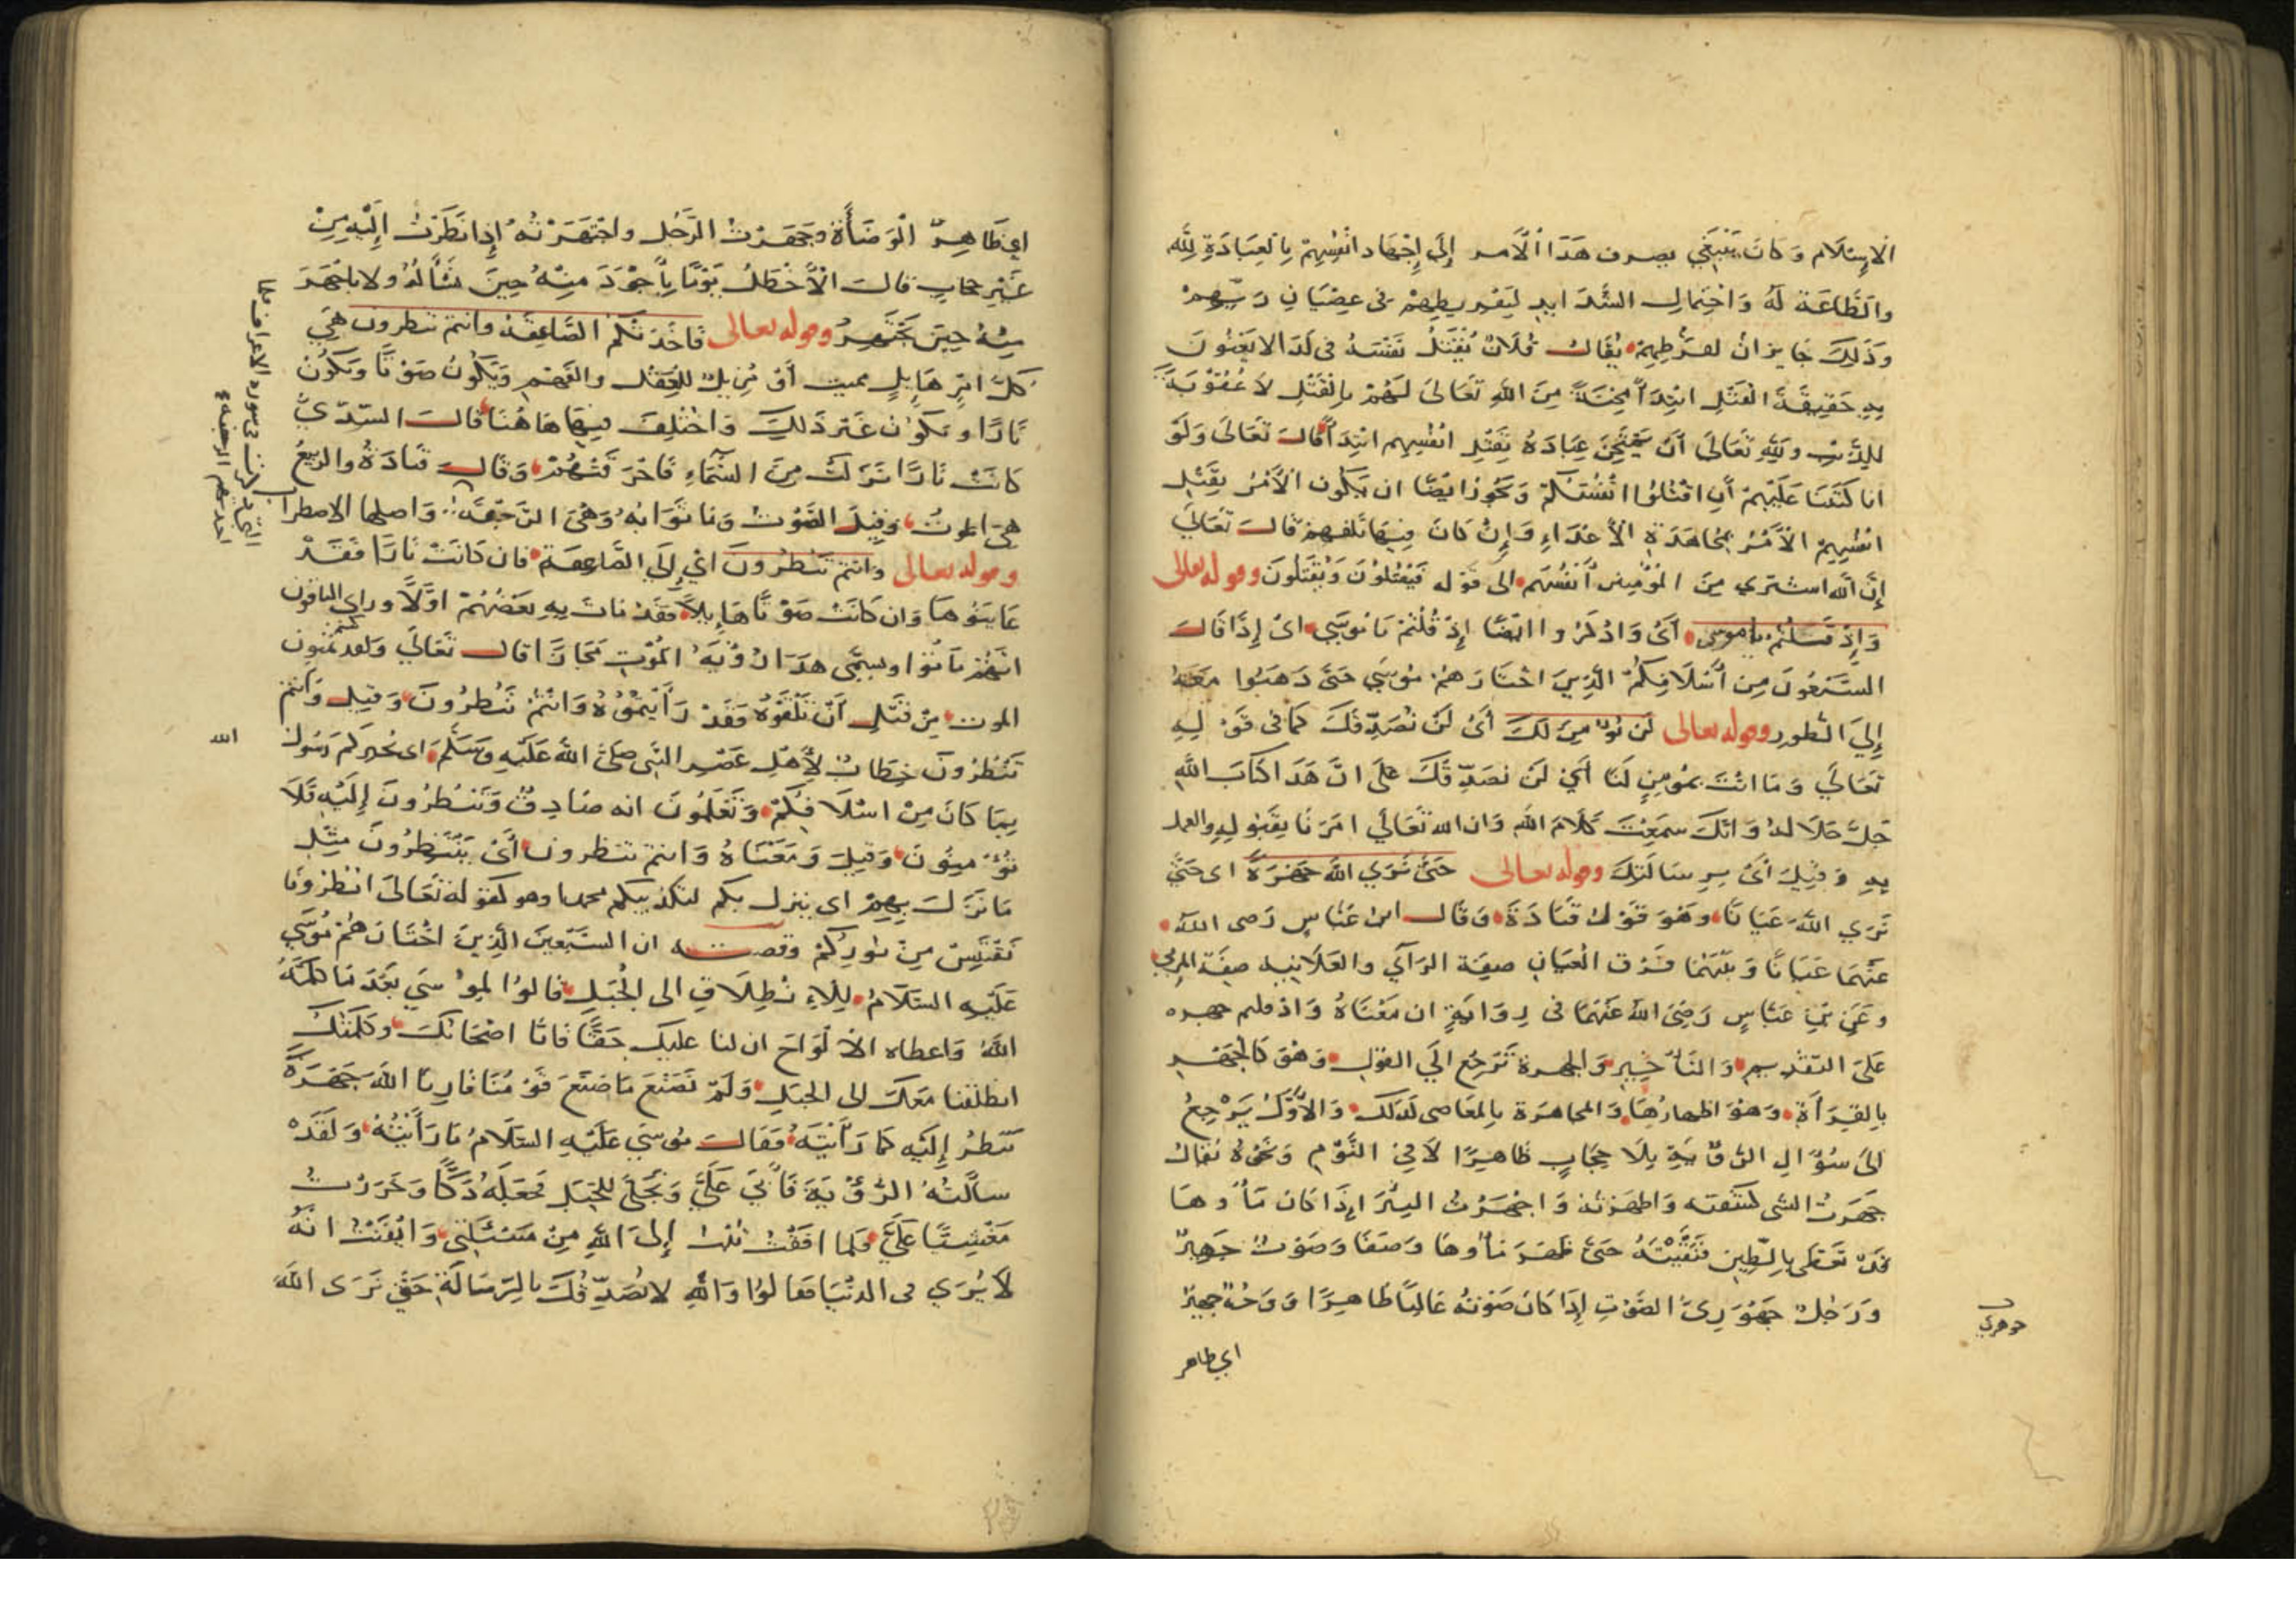 الاستلام وَكانَ يَنْبَغي بصرف هَذَا الْأمر إِلَى إِجْهَاد انفُسِهِمْ بِالعِبَادَةِ لِلّهِ
وَالطَّاعَة لَهُ وَاحْتِمَالِ الشَّدَايدِ لِتَفْرِيطِهِمْ فى عِصْيَانِ رَبِّهِمْ
وَذَلِكَ جَايز انْ لفَرْطِهِمْ يُقَال فُلَانٌ يُقْتَلُ نَفْسَهُ فى كَذَا لا يَعْنُونَ
بِهِ حَقِيقَةَ القَتْلِ ابْتِدَأ مِحْنَةً مِنَ اللهِ تَعَالَى لَهُمْ بِالْقَتْلِ لاَ عُقُوْبَةً
لِلذَّنْبِ ولِلهِ تَعَالَى أَنْ يَمْتَحِنَ عِبَادَهُ بِقَتْلِ انْفُسِهِم ابْتِدَأ قَالَ تَعَالَى وَلَوْ
انا كَتَبْنَا عَلَيْهِمْ أَنِ اقْتُلُوْا انْفُسَكُمْ وَيَجُوز ايْضًا ان يَكُون الْأَمْرُ بِقَتْلِ
انفُسِهِمْ الْأَمْرُ بِمُجَاهَدَةِ الْأَعْدَاءِ وَإِنْ كَانَ فِيهَا تَلَفهم قَالَ تَعَالَي
إِنَّ اللّه اشترى مِنَ المُؤْمِنِين أَنْفُسَهم الى قَوْله فَيَقْتُلُوْنَ وَيُقْتَلُونَ وقوله تعالى
وَإِذْ قُلْتُمْ يا موسى أَىْ وَاذْكُرُوا ايْضًا إِذْ قُلْتُمْ يَا مُوسَي اىْ إِذَا قَالَ
السَّبْعُونَ مِن أَسْلَافِكُمْ الَّذِيْنَ اخْتَارَهُمْ مُوْسَي حَتَّى ذَهَبُوا مَعَهُ
إِلَىَ الطُّورِ وقوله تعالى لَن نُؤْمِنَ لَكَ أَىْ لَنْ نُصَدِّقَكَ كَمَا فى قَوْلِهِ
تَعَالَي وَمَا انْتَ بمُوْمِنٍ لَنَا أَىْ لَنْ نصَدِّقَكَ عَلَى انَّ هَذَا كتَابَ اللهِ
جَلَّ جَلَالهُ وَانَّكَ سَمِعْتَ كَلَامَ اللهِ وَان الله تَعَالَي امَرَنَا بِقَبُولِهِ والعمل
بِهِ وَقِيْلَ أَىْ بِرِسَالَتِكَ وقوله تعالى حَتَّى نَرَي اللهَ جَهْرَةً اى حَتَّي
نَرَي اللهَ عَيَانًا وهُوَ قَوْلُ قَتَادَةَ وَقَال ابن عَبَّاسٍ رَضى اللهُ
عَنْهُمَا عَيَانًا وَبَيْنَهُمَا فَرْق الْعيَانِ صِفَة الرَّآي والعَلَانِيَه صِفَة المَرْئي
وعَنِ بْنِ عَبَّاسٍ رَضِىَ اللهُ عَنْهُمَا فى رِوَايَةٍ ان مَعْنَاهُ وَاذ قلتم جهره
عَلىَ التقْدِيمِ وَالتَأْخِيْرِ وَالجهرة تَرْجِعُ الَي القَوْلِ وَهُوَ كَالجَهْرِ
بِالقِرَأَةِ وَهُوَ اظهارُهَا وَالمجاهَرَة بِالمَعَاصى كَذَلك وَالْأَوَّلُ يَرْجِعُ
الىَ سُؤَالِ الرُّؤْيَةِ بِلَا حِجَابٍ ظَاهِرًا لَا فِى النَّوْمِ وَنَحْوِهُ يُقَالُ
جَهَرتُ الشَى كشَفته وَاظهَرته وَاجْهَرْتُ البِئْرَ إِذَا كَانَ مَاؤهَا
قَدْ تَغطّى بِالطّينِ فَنَقَّيْتَهُ حَتَّى ظَهَرَ مَاؤهَا وَصَفَا وَصَوْتٌ جَهِيْرٌ
وَرَجُلٌ جَهْوَرِىُّ الصَّوْتِ إِذَا كَانَ صَوْتهُ عَالِيًا ظَاهِرًا وَوَجْهٌ جهيرٌ
اى ظاهر
جوهرى
اى ظَاهِرُ الْوَضَأَةِ وجَهَرْتُ الرَّجُل واجْتَهَرْتُهُ إِذا نَظَرْتَ إِلَيْهِ مِنْ
غَيْرِ حجابٍ قالَ الْأَخْطَلُ يَوْمًا بِأَجْوَدَ مِنْهُ حِيْنَ تَسْأَلهُ ولا باجْهَرَ
مِنْهُ حِيْنَ يَجْتَهِرُ وقوله تعالى فَاخَذَتْكُمُ الصَّاعِقَهُ وانتم تنظرون هِيَ
كُلّ امْرٍ هَايِلٍ مميت أَوْ مُزِيلٌ لِلعَقْل والفَهْم وَيَكُونُ صَوْتًا وَيَكُوْن
نَارًا ويكُوْن غَيْرَ ذَلِكَ وَاخْتُلِفَ فِيْهَا هَاهُنَا قَالَ السّدّيُّ
كَانَتْ نَارًا نَزَلَتْ مِنَ السَّمَاءِ فَاحْرَقَتْهُمْ وَقَالَ قَتَادَةُ والرّبيعُ
هى الموتُ وَقِيْلَ الصَّوْتُ وَمَاتَوَابه وَهْىَ الرَّجفَة وَاصلها الاضطراب
وقوله تعالى وَانتم تَنْظُرُونَ اىْ إِلَى الصَّاعِقَة فَان كَانَتْ نَارًا فَقَدْ
عَايَنُوهَا وَان كَانَتْ صَوْتًا هَايِلاً فقَدْ مَاتَ بِهِ بَعْضُهُمْ اوَّلاً وراى الباقون
انَّهُمْ مَاتُوْا ويسمَّى هذَا رُؤْيَةُ المَوْتِ مَجَازًا قال تَعَالَي وَلقد كنتم تمنون
الموت مِنْ قَبْلِ أَنْ تَلْقَوْهُ فَقَدْ رَأَيْتُمُوْهُ وَانْتُمْ تَنْظُرُونَ وَقِيل وَانتمْ
تَنْظُرُوْنَ خِطَابٌ لِأَهْلِ عَصْرِ النَّبى صَلَّىَ اللهُ عَلَيْهِ وَسَلَّمَ اى يُخبركم رَسُول الله
بِمَا كَانَ مِنْ اسْلَافِكُمْ وَتَعْلَمُونَ انه صَادِقٌ وَتَنْظُرُونَ إِلَيْهِ فَلَا
تُؤْمِنُونَ وَقِيلَ وَمَعْنَاهُ وَانتم تنظرون أَىْ يَنْتَظِرُونَ مِثْلَ
مَا نَزَلَ بِهِمْ اى ينزل بكم لتكذيبكم محمدا وهو كقوله تَعَالَى انْظُرُوْنَا
نَقْتَبِسْ مِنْ نورِكُمْ وقصته ان السَّبْعِينَ الَّذِينَ اخْتَارَهُمْ مُوْسَي
عَلَيْهِ السَّلَامُ لِلاِنْطِلَاقِ الى الْجَبَلِ قالوُا لِموُسَي بَعْدَ مَا كلَّمَهُ
اللهُ وَاعطاه الْالْوَاحَ ان لنا عليك حَقًّا فَانَّا اصْحَابُكَ وَكلمَتكَ
انطَلَقْنَا مَعَكَ الى الجبَلِ وَلَمْ نَصْنَعْ مَا صَنَعَ قَوْمُنَا فَارِنَا اللهَ جَهْرَةً
نَنْظُرُ إِلَيْهِ كَمَا رَأَيْتَهُ فَقَالَ مُوسَي عَلَيْهِ السَّلَامُ مَا رَأَيْتُهُ وَلَقَدْ
سَأَلْتُهُ الرُّؤْيَةَ فَأَبَى عَلَيَّ وَتَجَلَّى لِلجَبَلِ فَجَعَلَهُ دَكًّا وَخَرَرْتُ
مَغْشِيًّا عَلَيَّ فَلَمَّا افَقْتُ تبْتُ إِلَى اللهِ مِنْ مَسْئَلَتِى وَايْقَنْتُ انَّهُ
لَا يُرَي فى الدنْيَا فقَالوُا وَاللهِ لا نُصَدِّقُكَ بالرّسَالَةِ حَتَّى نَرَى اللهَ